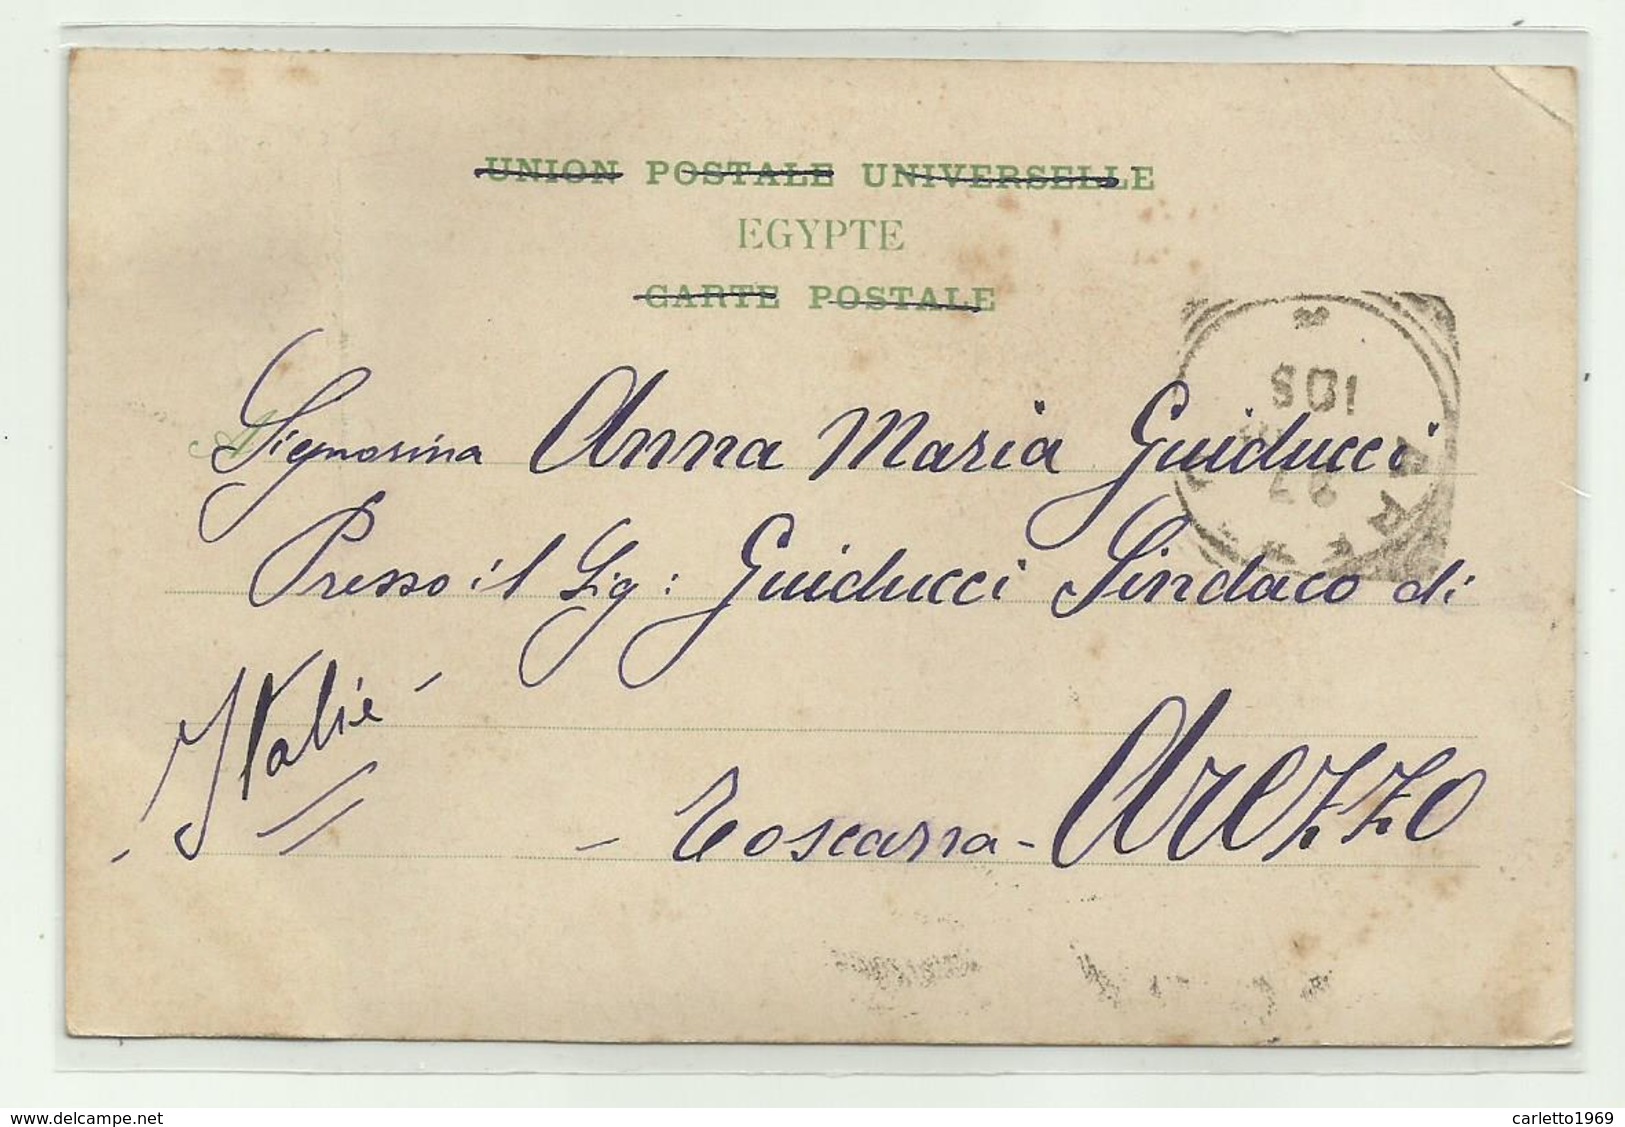 UNION POSTALE UNIVERSELLE
EGYPTE
CARTE POSTALE
Signorina Anna Maria Guiducci
Presso il Sig: Guiducci Sindaco di
Italie -
- Toscana - Arezzo
www.delcampe.net
carletto1969